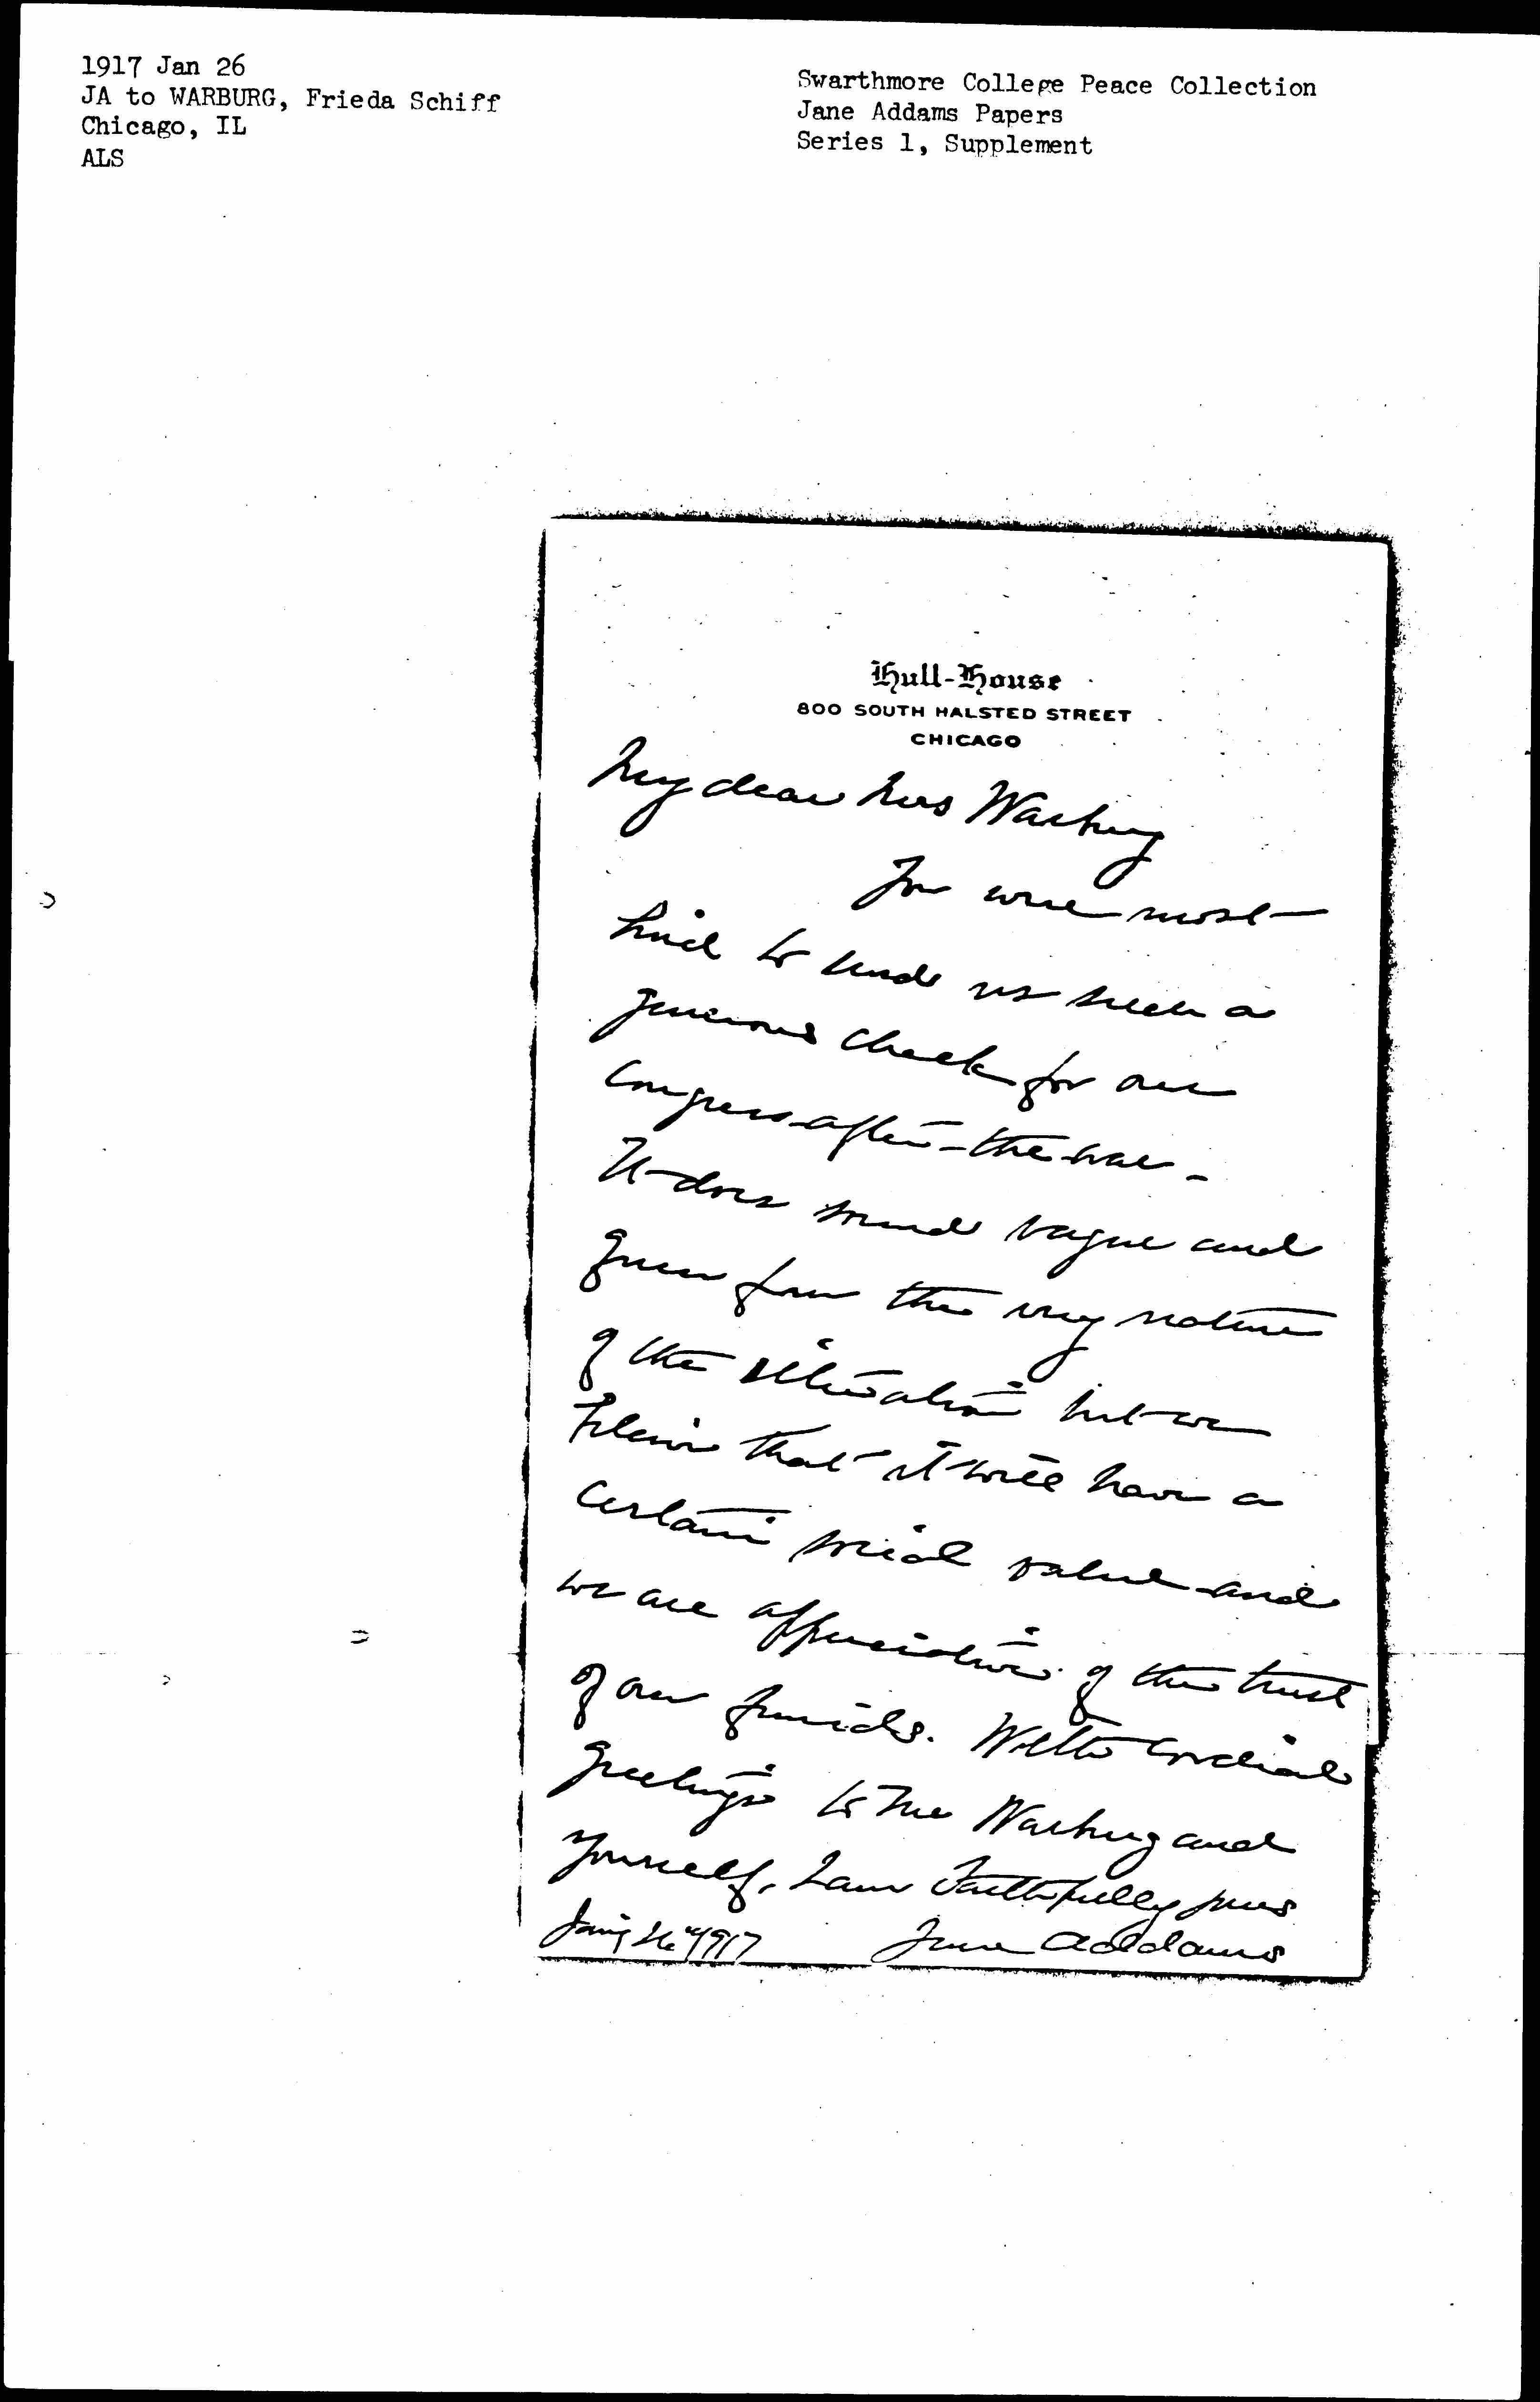 1917 Jan 26
JA to WARBURG, Frieda Schiff
Chicago, IL
ALS
Swarthmore College Peace Collection
Jane Addams Papers
Series 1, Supplement
Hull-House
800 SOUTH HALSTED STREET
CHICAGO
My dear Mrs Warburg
You were most
kind to send us such a
generous check for our
Congress-after-the-war-
It does sound vague and
queer from the very nature
of the situation but we
believe that it will have a
certain social value and
we are appreciative of the trust
of our friends. With cordial
greetings to Mr Warburg and
yourself, I am faithfully yours
Jan'y 26" 1917 Jane Addams